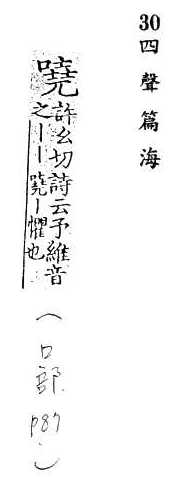 30 四聲篇海
嘵 許幺切詩云予維音
之丨丨嘵丨懼也
(口部 p87)